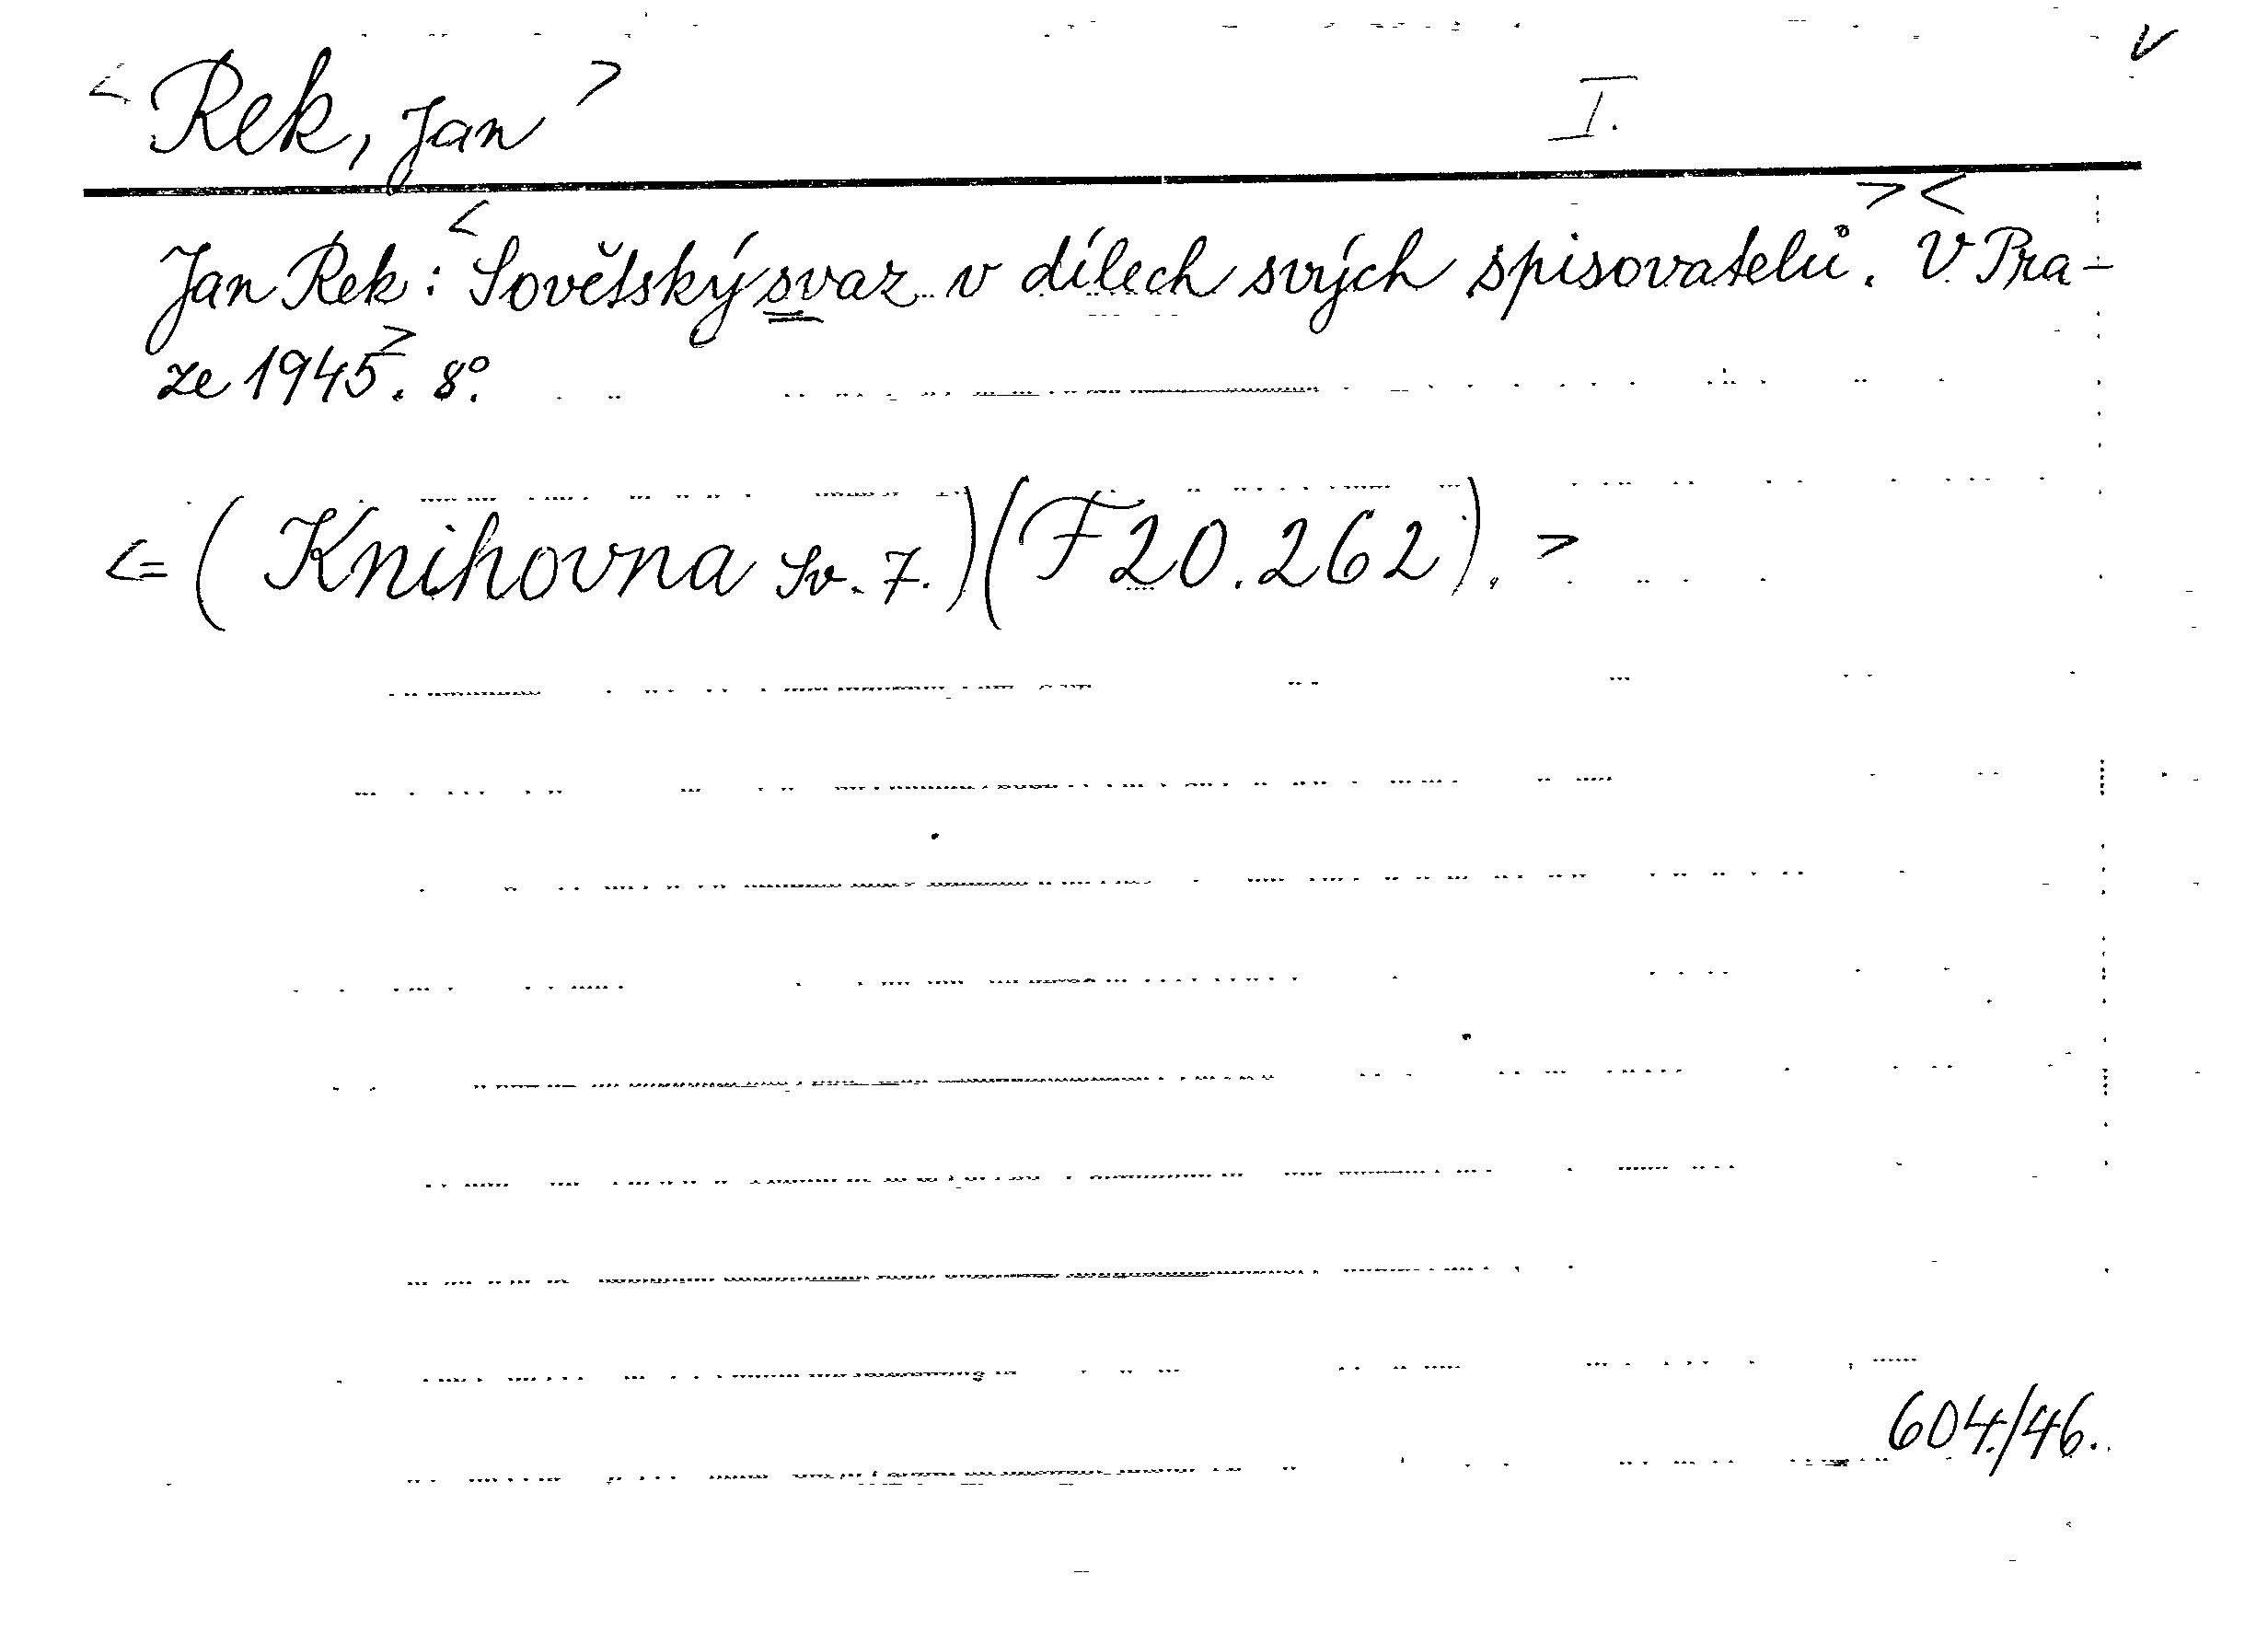 < Rek, Jan > I. v
Jan Rek: <Sovětský svaz v dílech svých spisovatelů.>< V Pra-
ze 1945>. 8°.
<=(Knihovna Sv. 7.)(F 20.262).>
604./46.